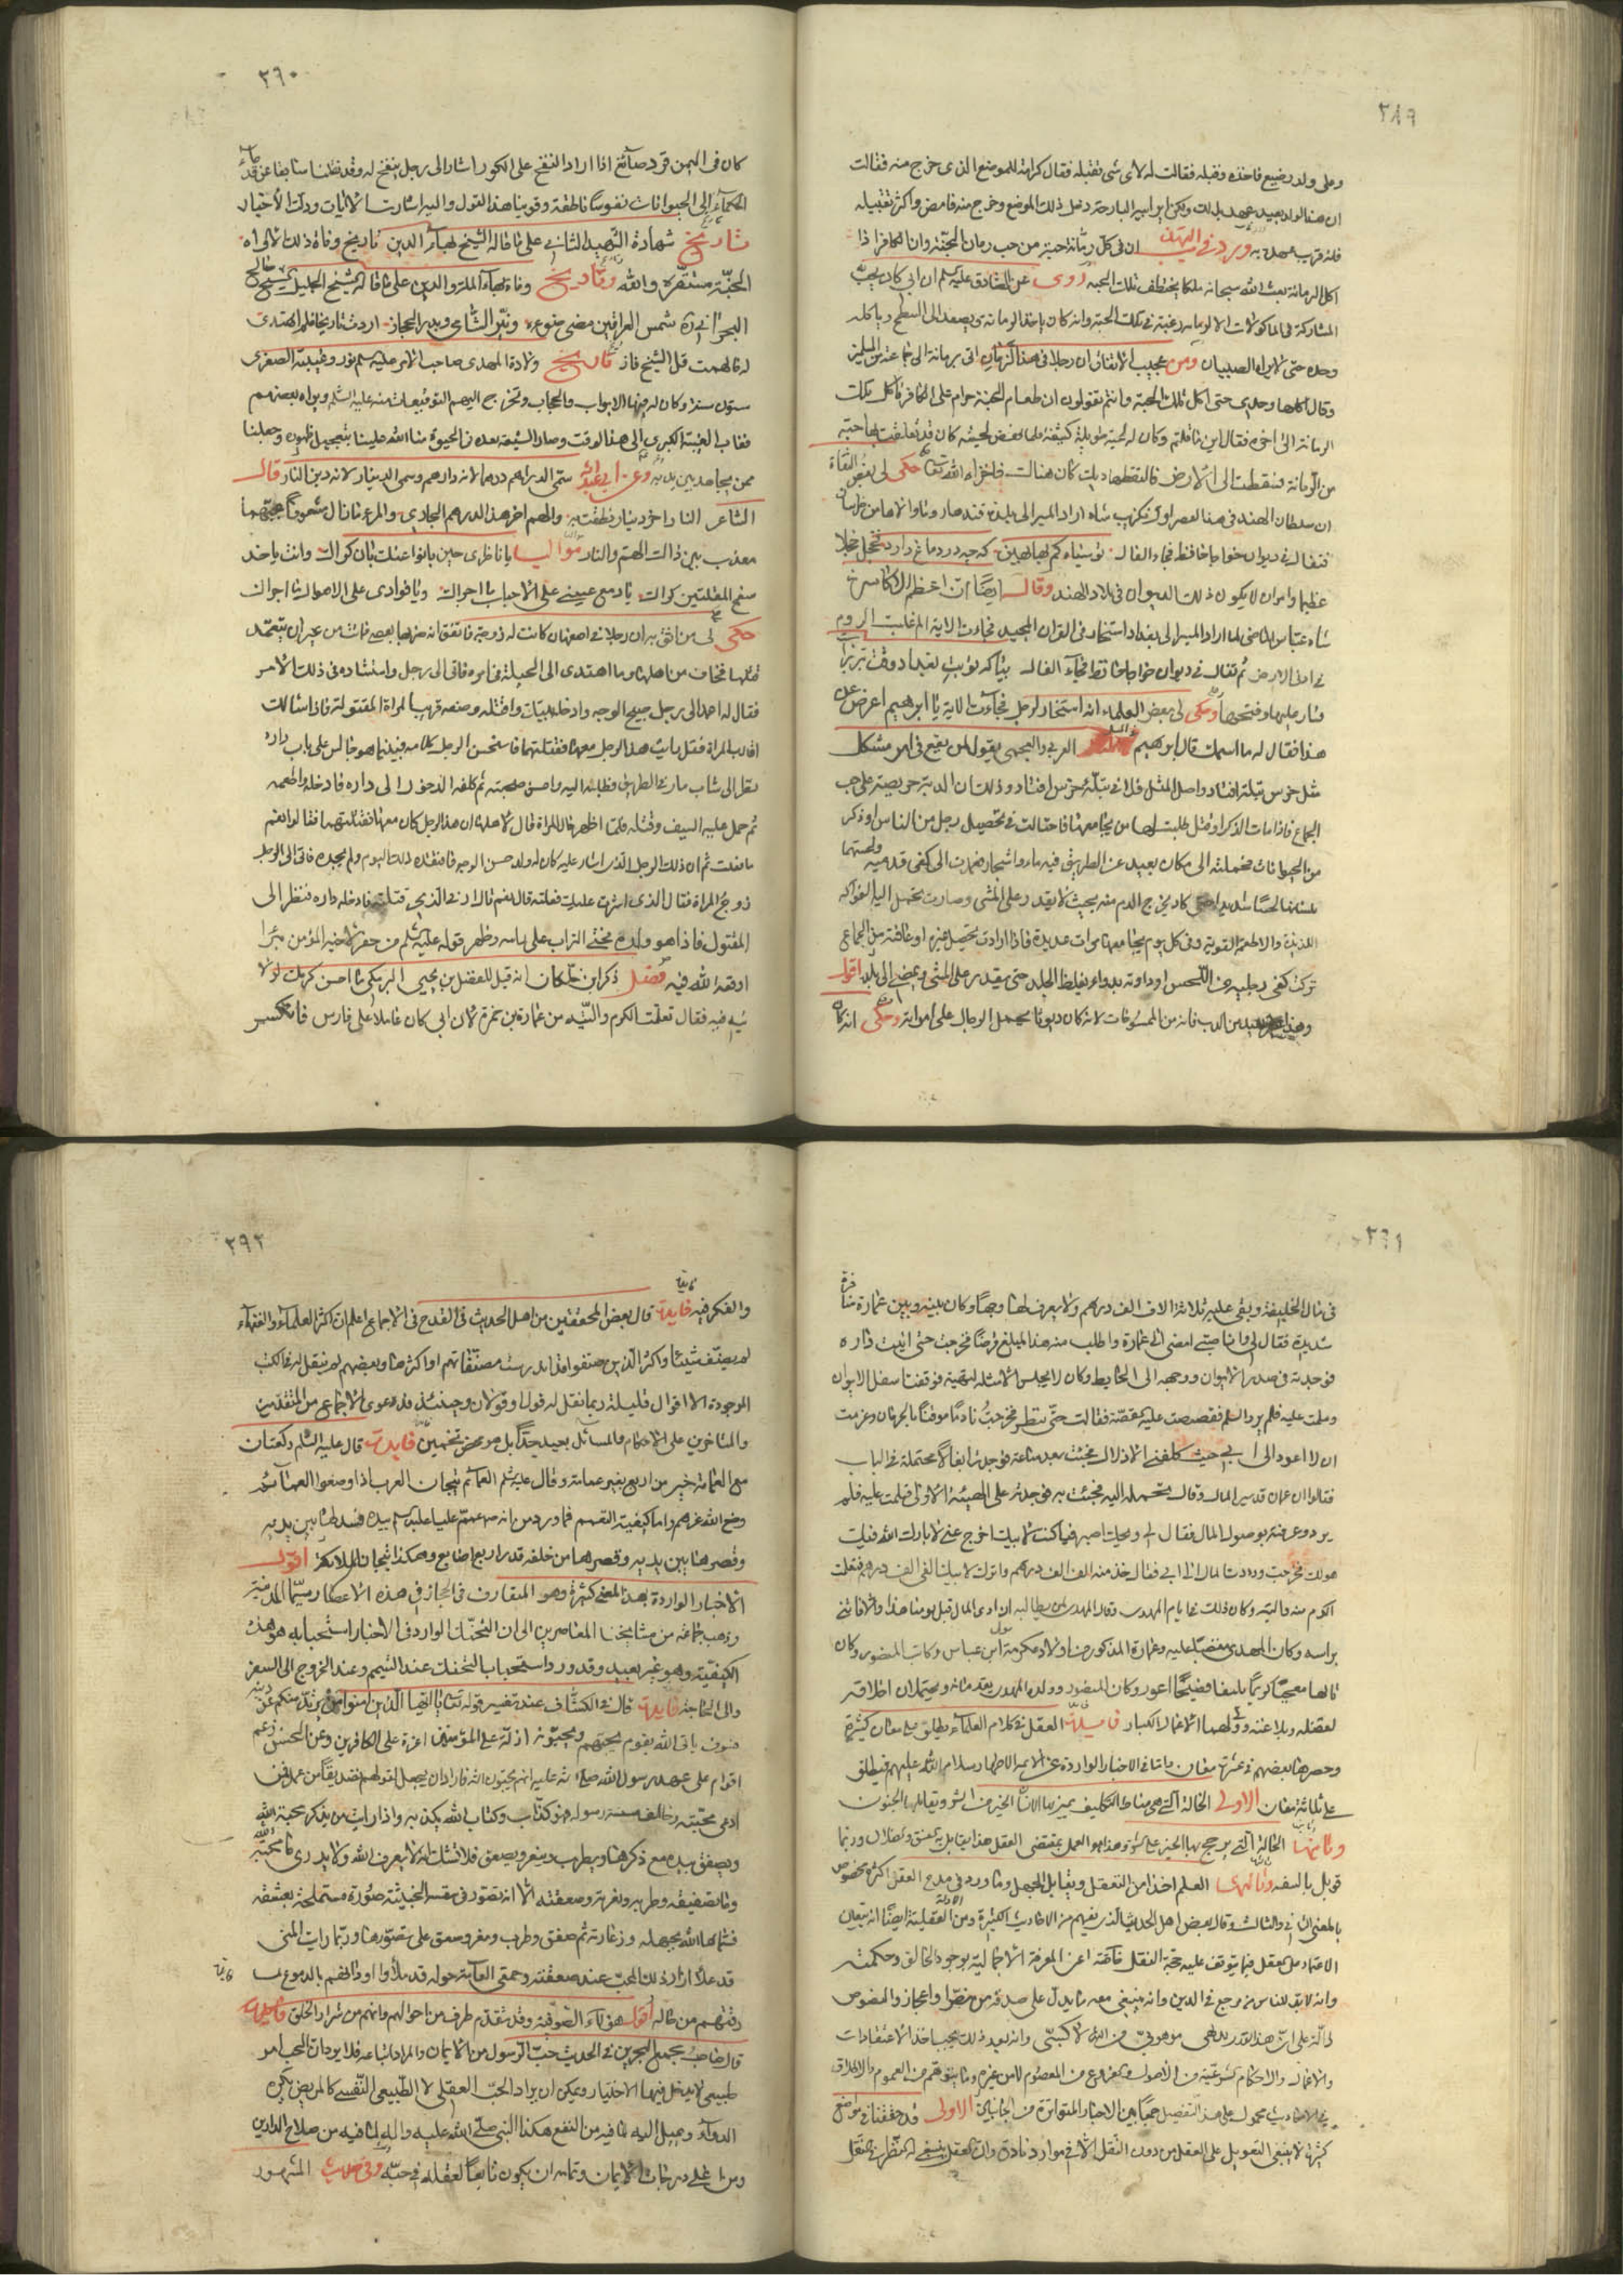 ٣٨٩
وعلى ولد رضيع فاخذه وقبله فقالت له لاى شى تقبله فقال كرامة للموضع الذى خرج منه فقالت
ان هذا الولد بعيد عهد بذلك ولكن ابو البارحة دخل ذلك الموضع وخرج منه فامض واكثر تقبيله
فانه قريب عهد به وورد فى ان فى كل رمانة حبة من حب رمان الجنة وان الكافر اذا
اكل الرمانة بعث الله سبحانه ملكا يختطف تلك الحبه روى عن الصادق عليه السلام ان ابى كان يحب
المشاركة فى الماكولات الا الرمانه رغبة فى تلك الحبة وانه كان ياخذ الرمانه ويصعد الى السطح وياكله
وحده حتى لا يراه الصبيان ومن عجيب الاتفاق ان رجلا فى هذا الزمان اتى برمانة الى جماعة من المسلمين
وقال اكلها وحدى حتى اكل تلك الحبة وانتم تقولون ان طعام الجنة حرام على الكافر فاكل تلك
الرمانة الى اخره فقال اين ما قلتم وكان له لحية طويلة كثيفة فلما نفض لحيته كان قد تعلقت بها حبه
من الرمانة فسقطت الى الارض فالتقطها ديك كان هناك فاخزاه الله تعالى حكى لى بعض الثقاة
ان سلطان الهند فى هذا العصر اورنكزيب شاه اراد المسير الى بلدة قندهار
فتفال فى ديوان خواجا حافظ فجاء الفال
عظيما وامر ان لا يكون ذلك الديوان فى بلاد الهند وقال ايضا ان اعظم
شاه عباس الماضى لما اراد المسير الى بغداد استخار فى القران المجيد فجاءت الاية الم غلبت الروم
فى ادنى الارض ثم تفال فى ديوان خواجا حافظ فجاء الفال بيا كه نوبت بغداد وقت تبريز است
فسار عليها وفتحها وحكى لى بعض العلماء انه استخار لرجل فجاءت الاية يا ابرهيم اعرض عن
هذا فقال له ما اسمك قال ابرهيم العربى والعجمى يقول لمن يقع فى امر مشكل
مثل خرس بتله افتاد واصل المثل فلان بتلة خرس افتاد وذلك ان الدبة حريصة على حب
الجماع فاذا مات الذكر او قتل طلبت لها من يجامعها فاحتالت فى تحصيل رجل من الناس او ذكر
من الحيوانات فحملته الى مكان بعيد عن الطريق فيه ماء واشجار فعمدت الى كفى قدميه ولحستهما
بلسانها لحسا شديدا حتى كاد يخرج الدم منه بحيث لا يقدر على المشى وصارت تحمل اليه الفواكه
اللذيذة والاطعمة القوية وفى كل يوم يجامعها مرات عديدة فاذا ارادت تحصيل غيره او عافته من الجماع
تركت كفى رجليه من اللحس اوداوته بدواء يغلظ الجلد حتى يقدر على المشى ويمضى الى بلده اقول
وهذا غير بعيد من الدب فانه من المسوخات لانه كان ديوثا يحمل الرجال على امراته وحكى انه كان
٣٩٠
كان فى اليمن قرد صائغ اذا اراد النفخ على الكور اشار الى رجل ينفخ له وقد نقلنا سابقا عن قدماء
الحكماء ان للحيوانات نفوسا ناطقة وقوينا هذا القول واليه اشارت الايات ودلت الاخبار
تاريخ شهادة الشهيد الثانى على ما قاله الشيخ بهاء الدين تاريخ وفاة ذلك الاواه
الجنة مستقره والله وتاريخ وفاة بهاء الملة والدين على ما قاله الشيخ الجليل الشيخ صالح
البحرانى ره شمس العراقين مضى ضوءه ونير الشام وبدر الحجاز اردت تاريخا فلم اهتد
له فالهمت قل الشيخ فاز تاريخ ولادة المهدى صاحب الامر عليه السلم نور وغيبته الصغرى
ستون سنة وكان له فيها الابواب والحجاب وتخرج اليهم التوقيعات منه عليه السلم ويراه بعضهم
فغاب الغيبة الكبرى الى هذا الوقت وصار الشيعة بعده فى الحيوة منّ الله علينا بتعجيل ظهوره وجعلنا
ممن يجاهد بين يديه وعن ابى عبد الله سمى الدرهم درهما لانه دار هم وسمى الدينار لانه دين النار قال
الشاعر النار اخر دينار نطقت به والهم اخر هذا الدرهم الجارى والمرء ما زال مشعوفا بحبهما
معذب بين ذاك الهم والنار مواليا يا ناظرى حين بانوا عنك
سفح المقلتين كراك يا دمع عينى على الاحباب ما اجراك ويا فوادى على الاهوال ما اجراك
حكى لى من اثق به ان رجلا فى اصفهان كانت له زوجة فاتفق انه ضربها بعصى فماتت من غير ان يتعمد
قتلها فخاف من اهلها وما اهتدى الى الحيلة فى امره فاتى الى رجل واستشاره فى ذلك الامر
فقال له اعمد الى رجل صبيح الوجه وادخله بيتك واقتله وضعه قريب المراة المقتولة فاذا سالك
اقارب المراة فقل رايت هذا الرجل معها فقتلتهما فاستحسن الرجل كلامه فبينما هو جالس على باب داره
نظر الى شاب مار فى الطريق فطلبه اليه واحسن صحبته ثم كلفه الدخول الى داره فادخله واطعمه
ثم حمل عليه السيف وقتله فلما اظهر حال المراة قال لاهلها ان هذا الرجل كان معها فقتلتهما فقالوا نعم
ما فعلت ثم ان ذلك الرجل الذى اشار عليه كان له ولد حسن الوجه فافتقده ذلك اليوم ولم يجده فاتى الى الرجل
زوج المراة فقال الذى اشرت عليك فعلته قال نعم قال ارنى الذى قتلته فادخله داره فنظر الى
المقتول فاذا هو ولده فحثى التراب على راسه وظهر قوله عليه السلم من حفر لاخيه المؤمن بئرا
اوقعه الله فيه فضل ذكر ابن خلكان انه قيل للفضل بن يحيى البرمكى ما احسن كرمك لولا
تيه فيه فقال تعلمت الكرم والتيه من عمارة بن حمزة لان ابى كان عاملا على فارس فانكسر
٣٩١
فى مال الخليفة وبقى عليه ثلاثة الاف الف درهم ولا يعرف لها وجها وكان بينه وبين عمارة منافرة
شديدة فقال لى وانا صبى امضى الى عمارة واطلب منه هذا المبلغ قرضا فخرجت حتى اتيت داره
فوجدته فى صدر الايوان ووجهه الى الحايط وكان لا يجلس الا مثله لتيهه فوقفت اسفل الايوان
وسلمت عليه فلم يرد السلم فقصصت عليه القصة فقالت حتى ننظر فخرجت نادما موقنا بالحرمان وعزمت
ان لا اعود الى ابى حيث كلفنى الاذلال فجئت بعد ساعة فوجدت ابغالا محملة فى الباب
فقالوا ان عمارة قد سير المال وقال تحمله اليه فجئت به فوجدته على الهيئة الاولى فسلمت عليه فلم
يرد وعرفته بوصول المال فقال لى ويحك اصيرفيا كنت لابيك اخرج عنى لا بارك الله فيك
هو لك فخرجت ورددت المال الى ابى فقال خذ منه الف الف درهم واترك لابيك الفى الف درهم فتعلمت
الكرم منه والتيه وكان ذلك فى ايام المهدى وقال المهدى لمن يطالبه ان ادى المال قبل يومنا هذا والا فاتنى
براسه وكان المهدى مغضبا عليه وعمارة المذكور من اولاد عكرمة مولى ابن عباس وكاتب المنصور وكان
تايها معجبا كريما بليغا فصيحا اعور وكان المنصور وولده المهدى يقدمانه ويحتملان اخلاقه
لفضله وبلاغته وولى لهما الاعمال الكبار فايدة العقل فى كلام العلماء يطلق على معان كثيرة
وحصرها بعضهم فى عشرة معان واما فى الاخبار الواردة عن الائمة الاطهار سلام الله عليهم فيطلق
على ثلاثة معان الاولى الحالة التى هى مناط التكليف يميز بها الانسان الخير من الشر ويقابلها الجنون
وثانيها الحالة التى يرجح بها الخير على الشر وهذا هو العمل بمقتضى العقل هذا يقابل بالحمق وربما
قوبل بالسفه وثالثها العلم اخذا من التعقل ويقابل الجهل وما ورد فى مدح العقل اكثره مخصوص
بالمعنى الثانى والثالث وقال بعض اهل الحديث الذى يفهم من الاحاديث الكثيرة ومن الادلة العقلية ايضا انه يتعين
الاعتماد على العقل فيما يتوقف عليه حجة النقل خاصة اعنى المعرفة الاجمالية بوجود الخالق وحكمته
وانه لابد للناس من مرجع فى الدين وانه ينبغى معه ما يدل على صدقه من نص او اعجاز والنصوص
دالة على ان هذا القدر بديهى موهوبى من الله لا كسبى وانه بعد ذلك يجب اخذ الاعتقادات
والاعمال والاحكام الشرعية من الاصول والفروع من المعصوم لا من غيره وما يتوهم من العموم والاطلاق
فى الاحاديث محمول على هذا التفصيل جمعا بين الاخبار المتواترة من الجانبين الاولى قد حققنا فى مواضع
كثيرة لا ينبغى التعويل على العقل من دون النقل الا فى موارد نادرة وان العقل ينبغى له النظر فى النقل
٣٩٢
والفكر فيه فايدة قال بعض المحققين من اهل الحديث فى القدح فى الاجماع اعلم ان اكثر العلماء والفقهاء
لم يصنف شيئا واكثر الذين صنفوا قد اندرست مصنفاتهم او اكثرها وبعضهم لم ينقل له فى الكتب
الموجودة الا اقوال قليلة وربما نقل له قول او قولان وحينئذ فدعوى الاجماع من المتقدمين
والمتاخرين على الاحكام والمسائل بعيد جدا بل هو محض تخمين فايدة قال عليه السلم ركعتان
مع العمامة خير من اربع بغير عمامة وقال عليه السلم العمائم تيجان العرب اذا وضعوا العمائم
وضع الله عزهم واما كيفية التعمم فما ورد من انه ص عمم عليا عليه السلم بيده فسدلها بين يديه
وقصرها من خلفه قدر اربع اصابع وهكذا تيجان الملائكة اقول
الاخبار الواردة بهذا المعنى كثيرة وهو المتعارف فى الحجاز فى هذه الاعصار سيما المدينة
وذهب جماعة من مشايخنا المعاصرين الى ان التحنك الوارد فى الاخبار استحبابه هو هذه
الكيفية وهو غير بعيد وقد ورد استحباب التحنك عند التعمم وعند الخروج الى السفر
والى الحاجة فايدة قال فى الكشاف عند تفسير قوله تعالى يا ايها الذين امنوا من يرتد منكم عن دينه
فسوف ياتى الله بقوم يحبهم ويحبونه اذلة على المؤمنين اعزة على الكافرين وعن الحسن زعم
اقوام على عهد رسول الله صلى الله عليه انهم يحبون الله فاراد ان يجعل لقولهم تصديقا من عمل فمن
ادعى محبته وخالف سنة رسوله فهو كذاب وكتاب الله يكذبه واذا رايت من يذكر محبة الله
ويصفق بيده مع ذكرها ويطرب وينعر ويصعق فلا تشك انه لا يعرف الله ولا يدرى ما محبة الله
وما تصفيقه وطربه ونعرته وصعقته الا انه تصور فى نفسه الخبيثة صورة مستملحة معشقة
فسماها الله بجهله وزعارته ثم صفق وطرب ونعر وصعق على تصورها وربما رايت المنى
قد ملأ ازار ذلك المحب عند صعقته وحمقى العامة حوله قد ملأوا اردانهم بالدموع لما
رققهم من حاله اقول هولاء الصوفية وقد تقدم طرف من احوالهم وانهم من شرار الخلق فايدة
قال صاحب مجمع البحرين فى الحديث حب الرسول من الايمان والمراد اتباعه فلا يرد ان الحب امر
طبيعى لا يدخل فيها الاختيار ويمكن ان يراد الحب العقلى لا الطبيعى النفسى كالمريض يكره
الدواء ويميل اليه لما فيه من النفع هكذا النبى صلى الله عليه واله لما فيه من صلاح الدارين
ومن اعلى درجات الايمان وتمامه ان يكون تابعا لعقله فى حبه وفى حديث المشهور